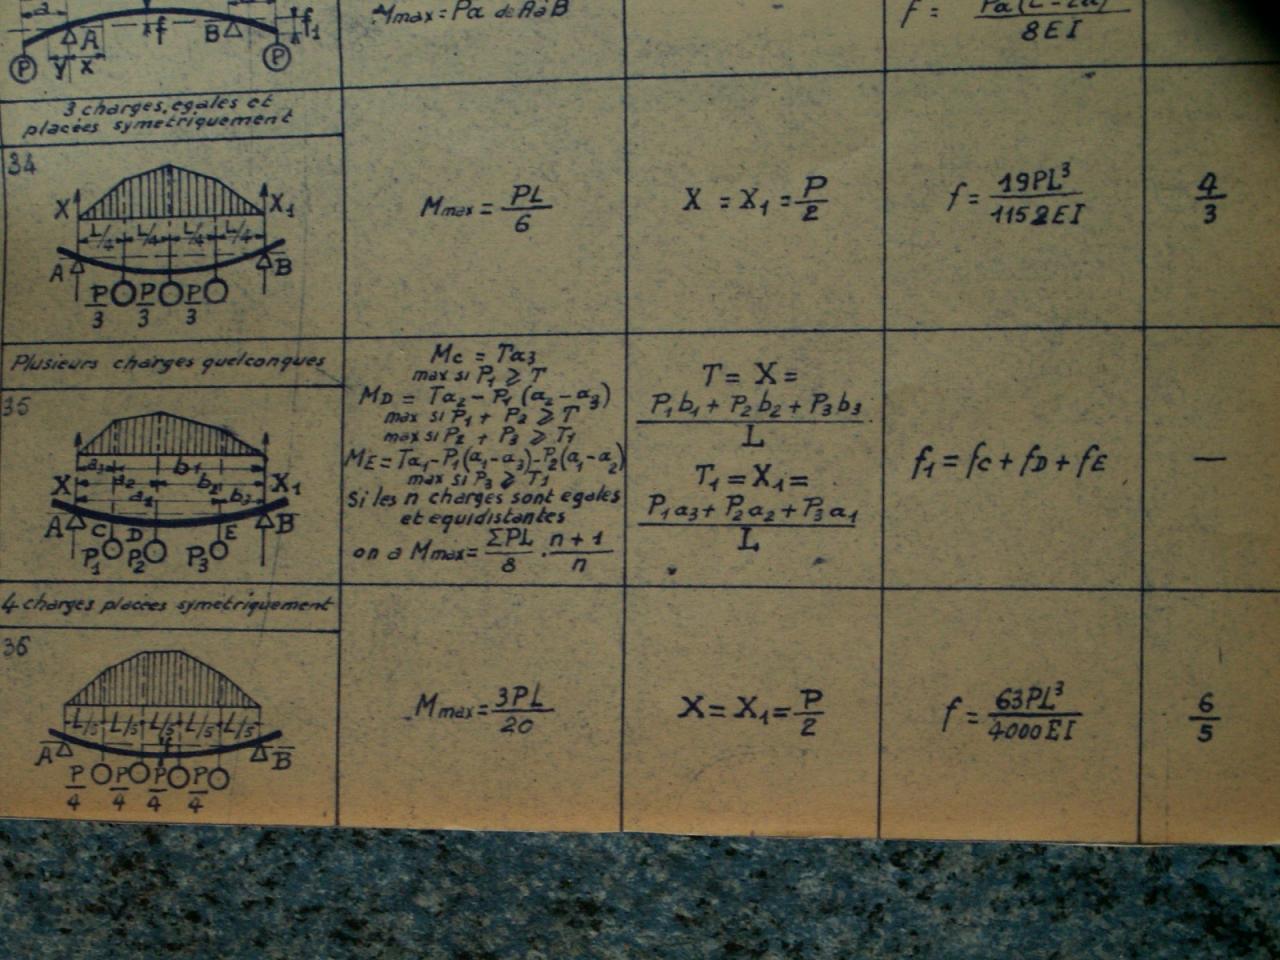 a
A
f
B
f1
P
y
x
P
Mmax = Pa de A à B
8EI
3 charges, egales et
placées symetriquement
34
X
X1
L/4 L/4 L/4 L/4
A
B
P/3 P/3 P/3
Mmax = PL/6
X = X1 = P/2
f = 19PL³/1152EI
4/3
Plusieurs charges quelconques
35
a3
b1
a2
b2
X
X1
a1
b3
A C D E B
P1 P2 P3
Mc = Ta3
max si P1 ⩾ T
MD = Ta2 - P1 (a2 - a3)
max si P1 + P2 ⩾ T
max si P2 + P3 ⩾ T1
ME = Ta1 - P1(a1 - a3) - P2(a1 - a2)
max si P3 ⩾ T1
Si les n charges sont egales
et equidistantes
on a Mmax = ΣPL/8 . n + 1/n
T = X =
P1b1 + P2b2 + P3b3
L
T1 = X1 =
P1a3 + P2a2 + P3a1
L
f1 = fc + fD + fE
—
4 charges placées symetriquement
36
L/5 L/5 L/5 L/5 L/5
A
f
B
P/4 P/4 P/4 P/4
Mmax = 3PL/20
X = X1 = P/2
f = 63PL³/4000EI
6/5